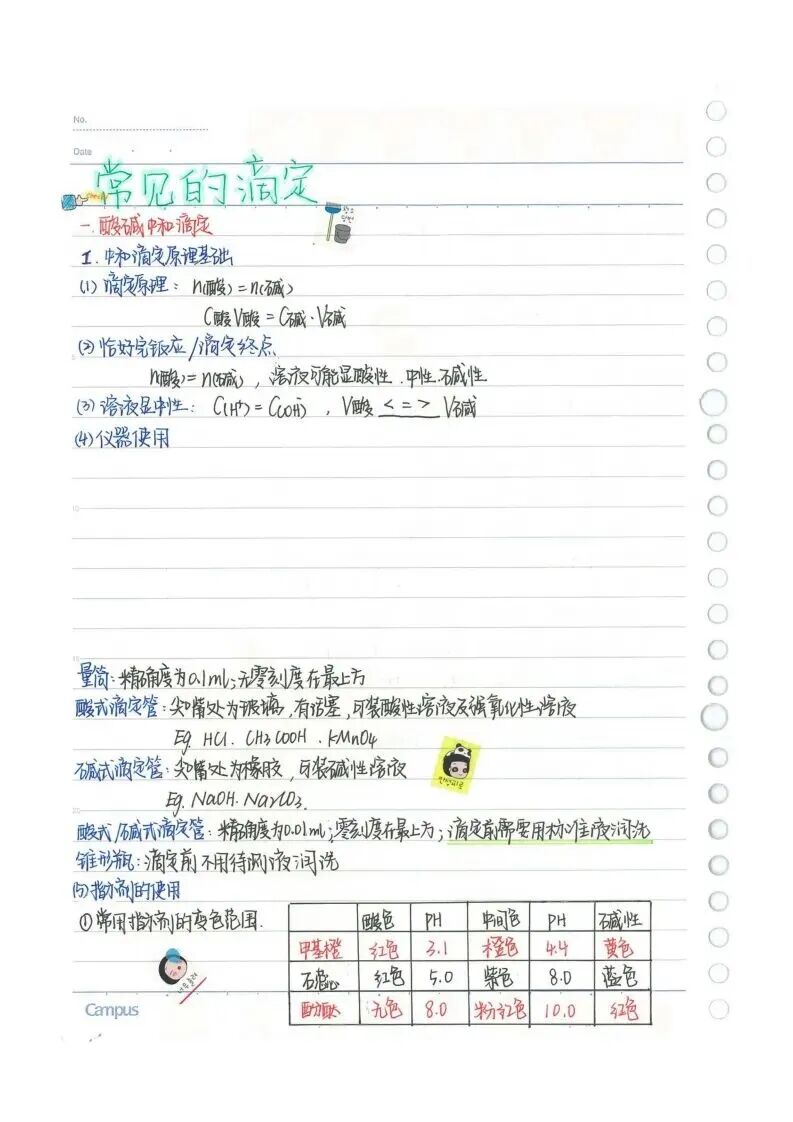 No.
Date
常见的滴定
一.酸碱中和滴定
I.中和滴定原理基础
(1)滴定原理：n(酸)=n(碱)
C酸V酸=C碱·V碱
(2)恰好完饭应/滴定终点
n(酸)=n(碱)，溶液可能显酸性.中性.碱性
(3)溶液显中性：C(H⁺)=C(OH⁻)，V酸 < = > V碱
(4)仪器使用
5
10
15
量筒:精确度为0.1ml;无零刻度在最上方
酸式滴定管:尖嘴处为玻璃,有活塞,可装酸性溶液及强氧化性溶液
Eg. HCl. CH3COOH. KMnO4
碱式滴定管:尖嘴处为橡胶,可装碱性溶液
Eg. NaOH. Na2CO3.
20
酸式/碱式滴定管:精确度为0.01ml;零刻度在最上方;滴定前需要用标准液润洗
锥形瓶:滴定前不用待测液润洗
(5)指示剂的使用
①常用指示剂的变色范围.
酸色 PH 中间色 PH 碱性
甲基橙 红色 3.1 橙色 4.4 黄色
石蕊 红色 5.0 紫色 8.0 蓝色
酚酞 无色 8.0 粉红色 10.0 红色
Campus